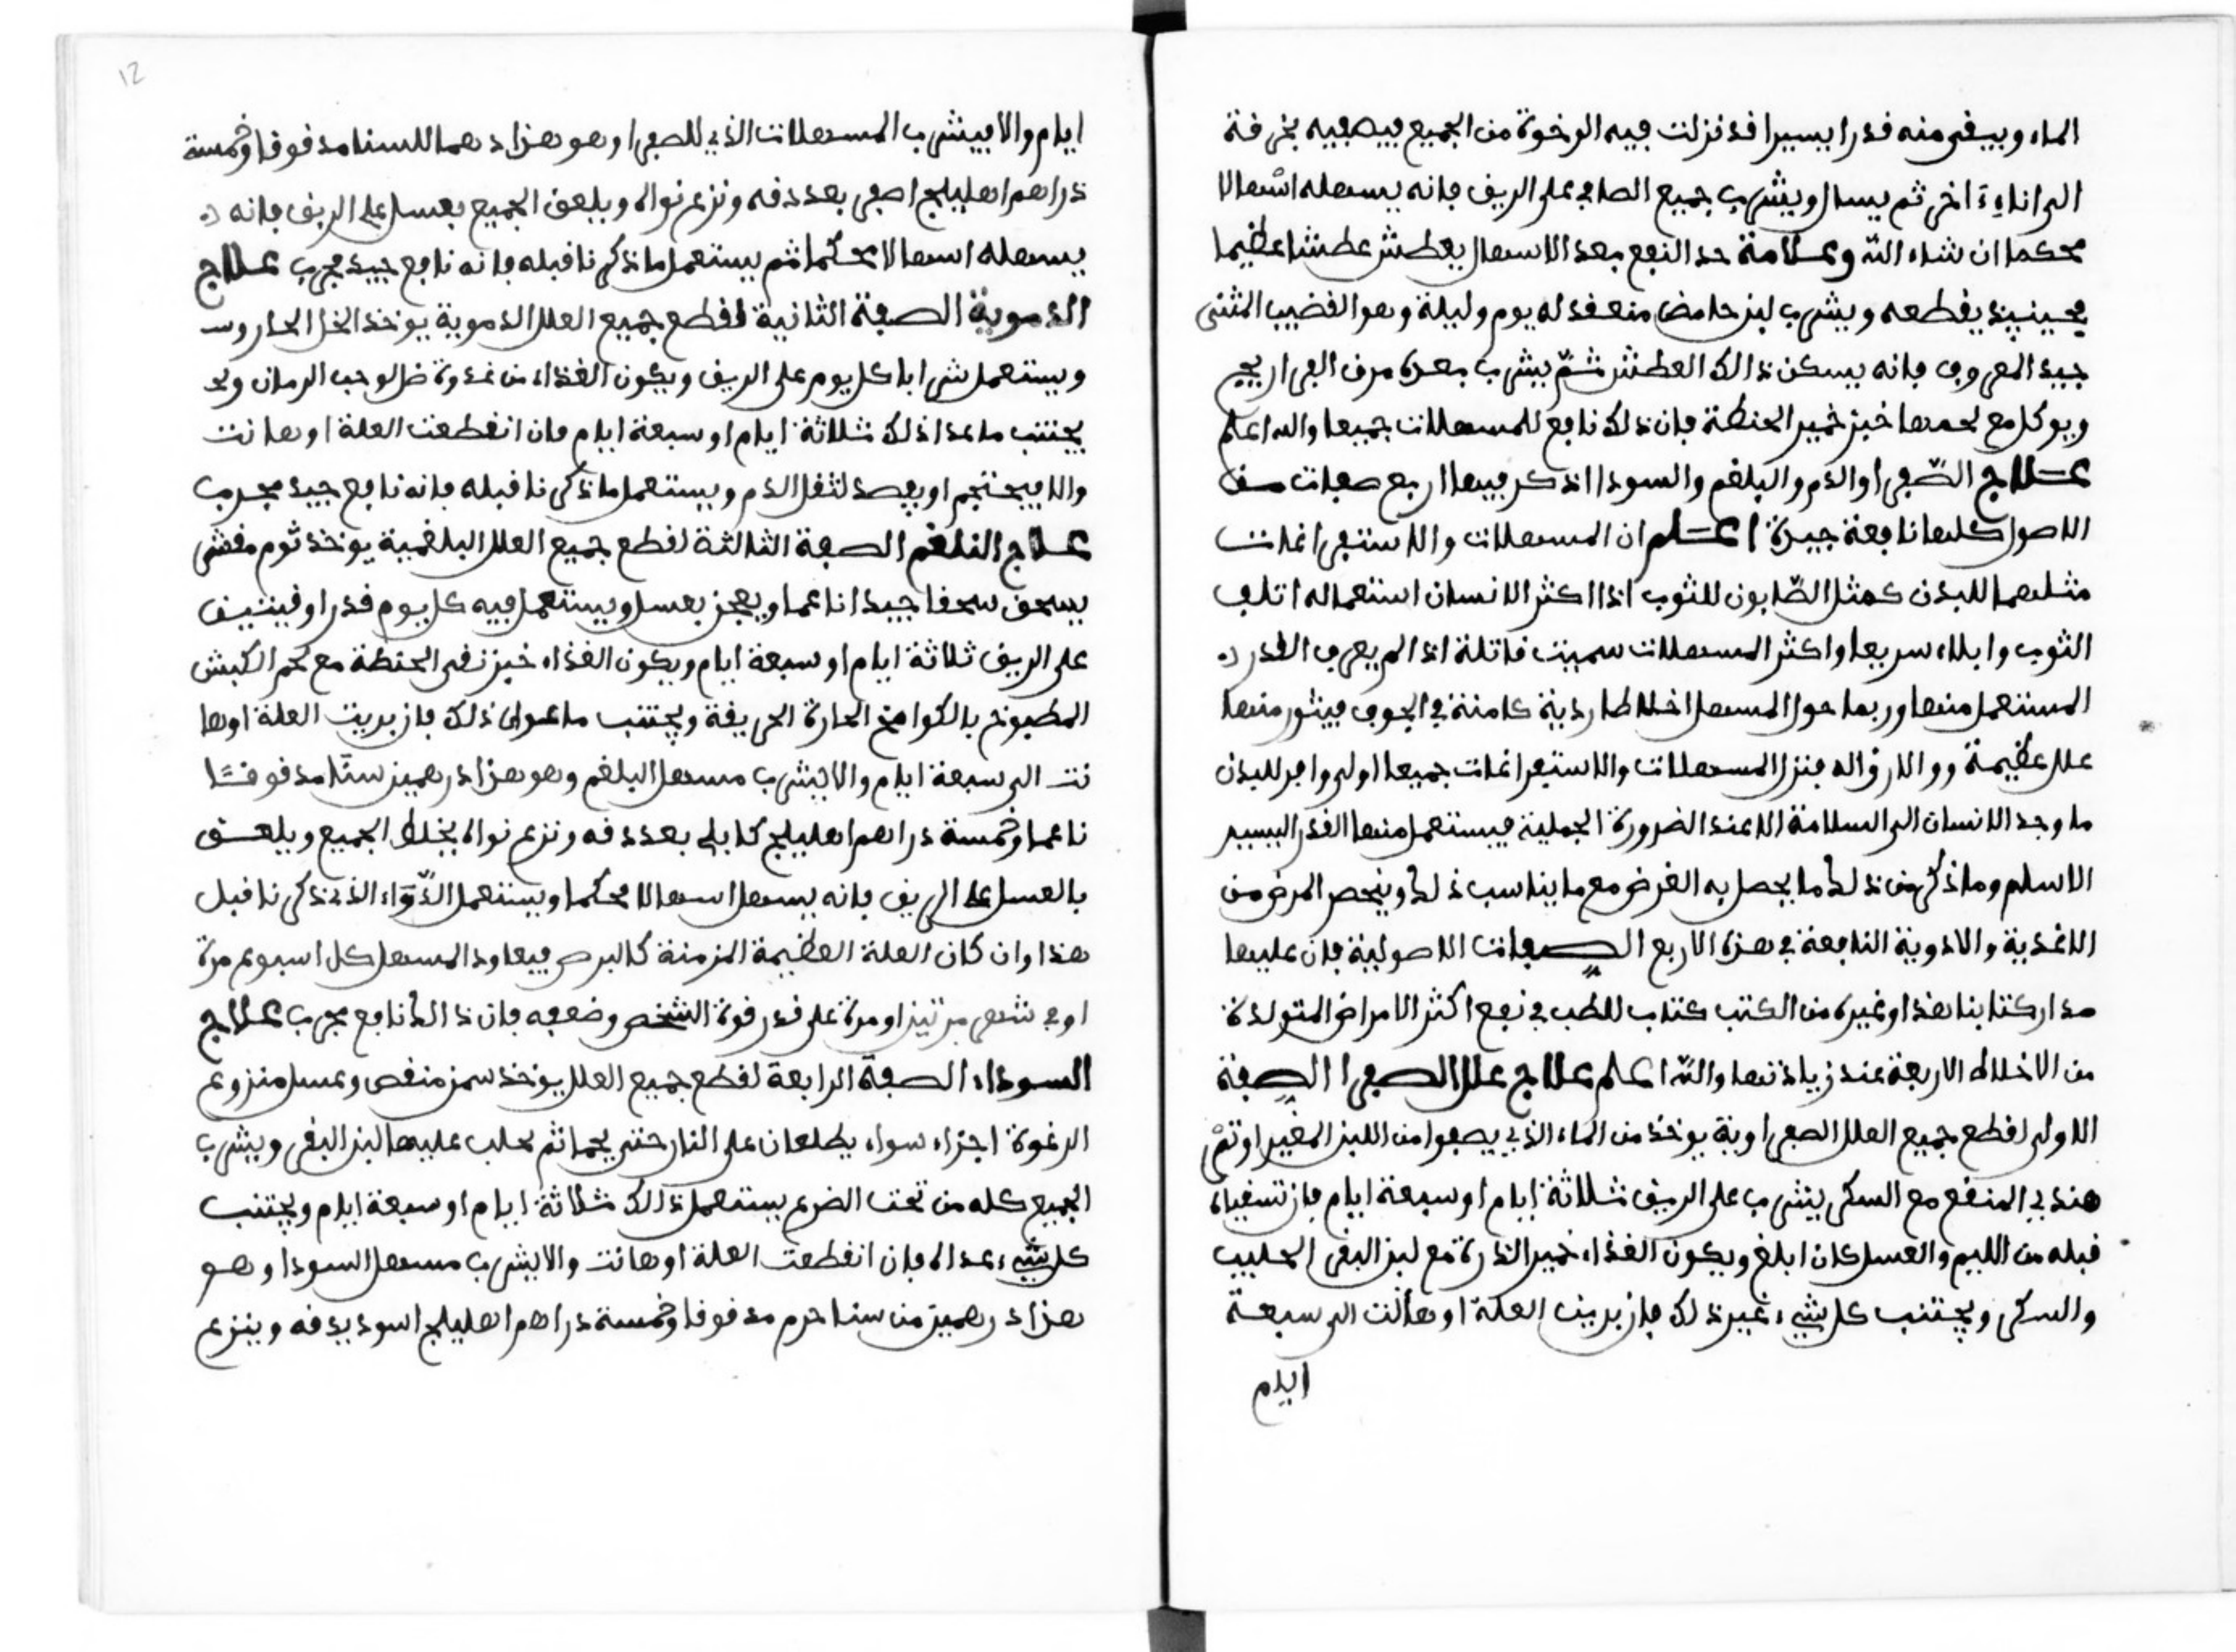 الماء ويبقى منه قدرا يسيرا قد نزلت فيه الرخوة من الجميع فيصفيه بخرقة
الى اناء اخر ثم يسال ويشرب جميع الصافي على الريق فانه يسهله اسهالا
محكما ان شاء الله وعلامة حد النفع بعد الاسهال يعطش عطشا عظيما
فحينيذ يقطعه ويشرب لبن حامض منعقد له يوم وليلة وهو القضيب المثنى
جيد المعروف فانه يسكن ذالك العطش ثم يشرب بعده مرق الفراريج
ويوكل مع لحمها خبز خمير الحنطة فان ذلك نافع للمسهلات جميعا والله اعلم
علاج الصفرا والدم والبلغم والسودا اذكر فيها اربع صفات من
الاصول كلها نافعة جيدة اعلم ان المسهلات والاستفراغات
مثلهما للبدن كمثل الصابون للثوب اذا اكثر الانسان استعماله اتلف
الثوب وابلاه سريعا واكثر المسهلات سميت قاتلة اذا لم يعرف القدر
المستعمل منها وربما حول المسهل اخلاطا ردية كامنة في الجوف فيثور منها
علل عظيمة ووالا زواله فنزل المسهلات والاستفراغات جميعا اولى وافر للبدن
ما وجد الانسان الى السلامة الا عند الضرورة الجملية فيستعمل منها القدر اليسير
الاسلم وما ذكر من ذلك ما يحصل به الغرض مع ما يناسب ذلك وينحص المرض من
الاغذية والادوية النافعة في هذه الاربع الصفات الاصولية فان عليها
مدار كتابنا هذا وغيره من الكتب كتاب للطب في نفع اكثر الامراض المتولدة
من الاخلاط الاربعة عند زيادتها والله اعلم علاج علل الصفرا الصفة
الاولى لقطع جميع العلل الصفراوية يوخذ من الماء الذي يصفوا من اللبن المغير اوتمر
هندي المنقع مع السكر يشرب على الريق ثلاثة ايام او سبعة ايام فان تسقياه
قبله من الليم والعسل كان ابلغ ويكون الغذاء خمير الذرة مع لبن البقر الحليب
والسكر ويجتنب كل شيء غير ذلك فان بريت العلة او هانت الى سبعة
ايام
ايام والا فيشرب المسهلات الذي للصفرا وهو هذا درهما للسنا مدقوقا وخمسة
دراهم اهليلج اصفر بعد دقه ونزع نواه ويلعق الجميع بعسل على الريق فانه
يسهله اسهالا محكما ثم يستعمل ما ذكرنا قبله فانه نافع جيد مجرب علاج
الدموية الصفة الثانية لقطع جميع العلل الدموية يوخذ الخل الحار وسـ
ويستعمل شرابا كل يوم على الريق ويكون الغذاء من غدوة خل وحب الرمان ولا
يجتنب ما عدا ذلك ثلاثة ايام او سبعة ايام فان انقطعت العلة او هانت
والا فيحتجم او يفصد لثقل الدم ويستعمل ما ذكرنا قبله فانه نافع جيد مجرب
علاج البلغم الصفة الثالثة لقطع جميع العلل البلغمية يوخذ ثوم مقشر
يسحق سحقا جيدا ناعما ويعجن بعسل ويستعمل فيه كل يوم قدر اوقيتين
على الريق ثلاثة ايام او سبعة ايام ويكون الغذاء خبز نقي الحنطة مع لحم الكبش
المطبوخ بالكوامخ الحارة الحريفة ويجتنب ما سوى ذلك فان بريت العلة او ها
نت الى سبعة ايام والا فيشرب مسهل البلغم وهو هذا درهمين سنا مدقوقـا
ناعما وخمسة دراهم اهليلج كابلي بعد دقه ونزع نواه يخلط الجميع ويلعق
بالعسل على الريق فانه يسهل اسهالا محكما ويستعمل الدواء الذي ذكرنا قبل
هذا وان كان العلة العظيمة المزمنة كالبرص فيعاود المسهل كل اسبوع مرة
او في شهر مرتين او مرة على قدر قوة الشخص وضعفه فان ذالك نافع مجرب علاج
السوداء الصفة الرابعة لقطع جميع العلل يوخذ سمن منقص وعسل منزوع
الرغوة اجزاء سواء يطلعان على النار حتى يحما ثم يحلب عليها لبن البقر ويشرب
الجميع كله من تحت الضرع يستعمل ذالك ثلاثة ايام او سبعة ايام ويجتنب
كل شيء عداه فان انقطعت العلة او هانت والا يشرب مسهل السودا وهو
هذا درهمين من سنا حرم مدقوقا وخمسة دراهم اهليلج اسود يدقه وينزع
12